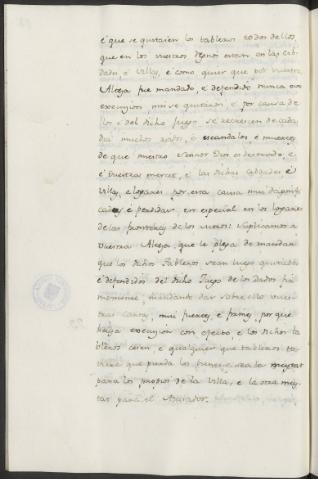 e que se quitasen los tableros todos dellos,
que en los vuestros Reynos estan en las cib-
dades, é Villas, e como quier que por vuestra
Alteza fue mandado, é defendido nunca ovo
execucion, nin se quitaron, e por causa de
los é del dicho Juego se recrescen de cada
dia muchos robos, é escandalos é muertes,
de que nuestro Señor Dios es deservido, e
é vuestras mercet, e las dichas cibdades é
Villas, e logares por esta causa mui dapnifi-
cadas é perdidas, en especial en los logares
de las fronteras de los moros: Suplicamos a
vuestra Alteza, que le plega de mandar
que los dichos Tableros sean luego quitados
é defendidos del dicho Juego de los dados
mandando dar sobre ello vues-
tras cartas, mui fuertes, é firmes, por que
haya execucion con efecto, e los dichos ta-
bleros cesen, e qualquier que tableros to-
viere que pierda los bienes, sea la meytat
para los propios de la Villa, e la otra mey-
tat para el Acusador.